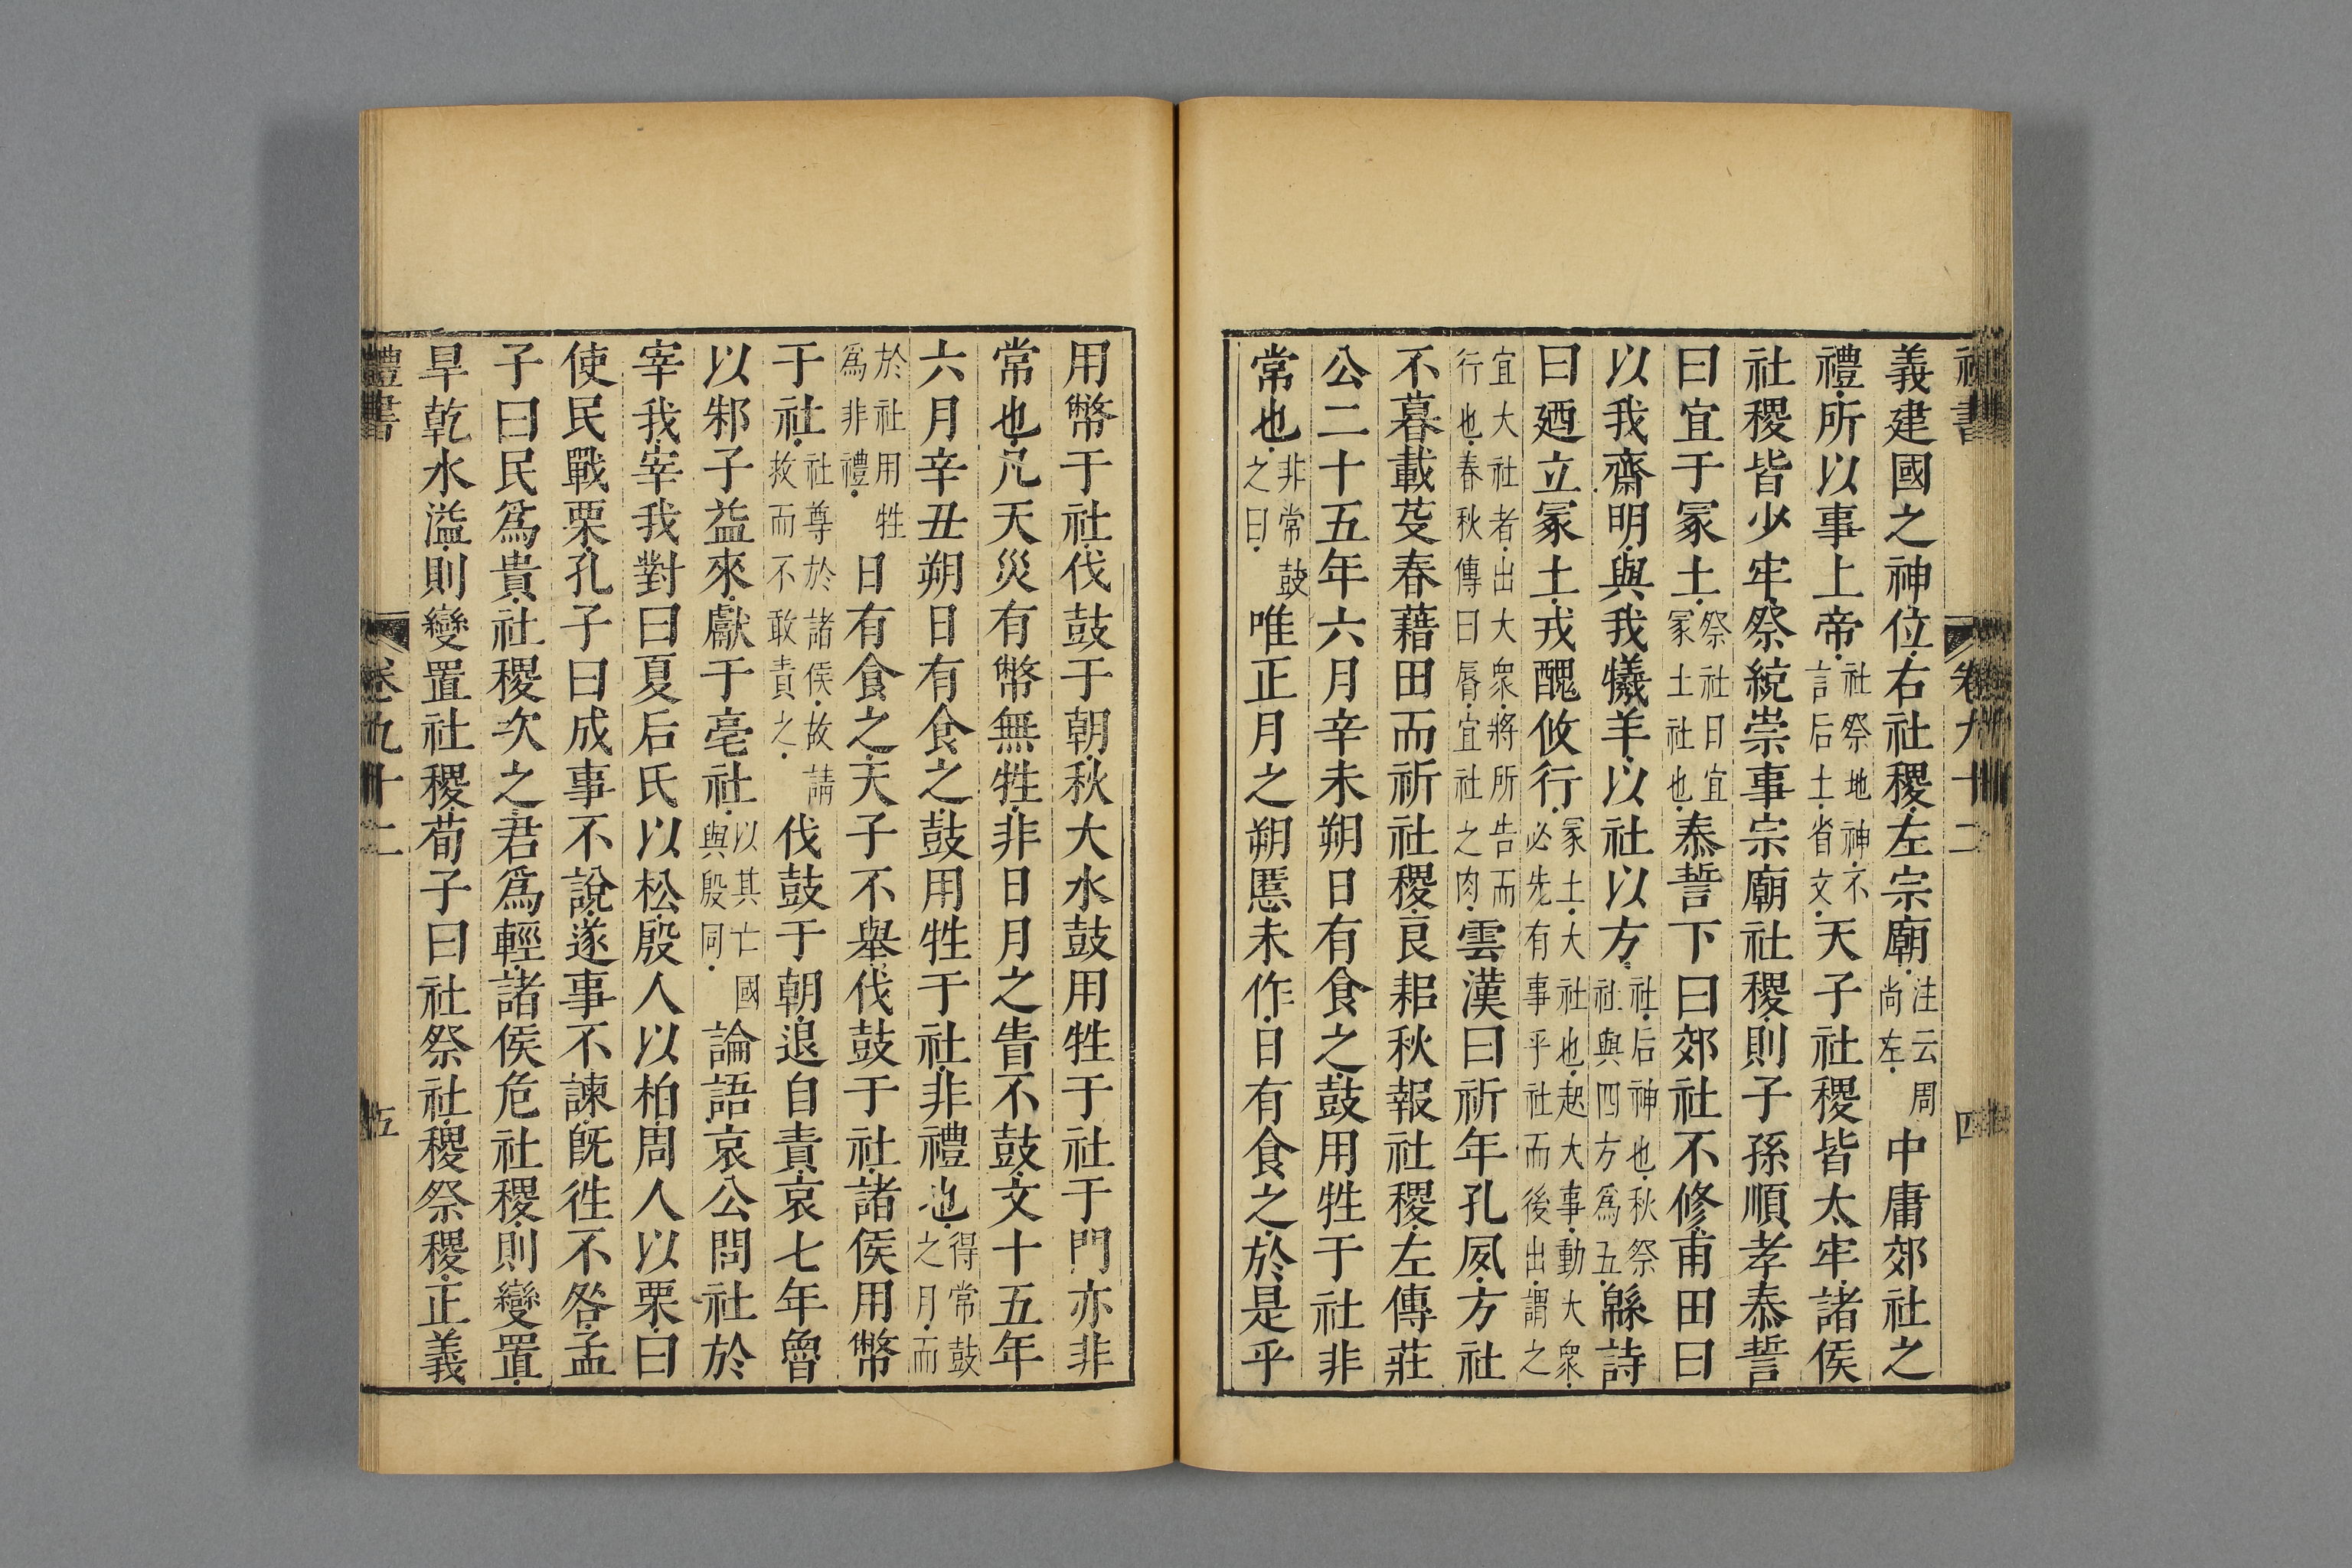 義建國之神位右社稷左宗廟注云周尚左中庸郊社之
禮所以事上帝社祭地神不言后土省文天子社稷皆太牢諸侯
社稷皆少牢祭統崇事宗廟社稷則子孫順孝泰誓
曰宜于冢土祭社曰宜冢土社也泰誓下曰郊社不修甫田曰
以我齋明與我犧羊以社以方社后神也秋祭社與四方爲五緜詩
曰廼立冢土戎醜攸行冢土大社也起大事動大衆必先有事乎社而後出謂之
宜大社者出大衆將所告而行也春秋傳曰脤宜社之肉雲漢曰祈年孔夙方社
不暮載芟春藉田而祈社稷良耜秋報社稷左傳莊
公二十五年六月辛未朔日有食之鼓用牲于社非
常也非常鼓之曰唯正月之朔慝未作日有食之於是乎
用幣于社伐鼓于朝秋大水鼓用牲于社于門亦非
常也凡天災有幣無牲非日月之眚不鼓文十五年
六月辛丑朔日有食之鼓用牲于社非禮也得常鼓之月而
於社用牲爲非禮日有食之天子不舉伐鼓于社諸侯用幣
于社社尊於諸侯故請救而不敢責之伐鼓于朝退自責哀七年魯
以邾子益來獻于亳社以其亡國與殷同論語哀公問社於
宰我宰我對曰夏后氏以松殷人以柏周人以栗曰
使民戰栗孔子曰成事不說遂事不諫旣徃不咎孟
子曰民爲貴社稷次之君爲輕諸侯危社稷則變置
旱乾水溢則變置社稷荀子曰社祭社稷祭稷正義
禮書 卷九十二 五